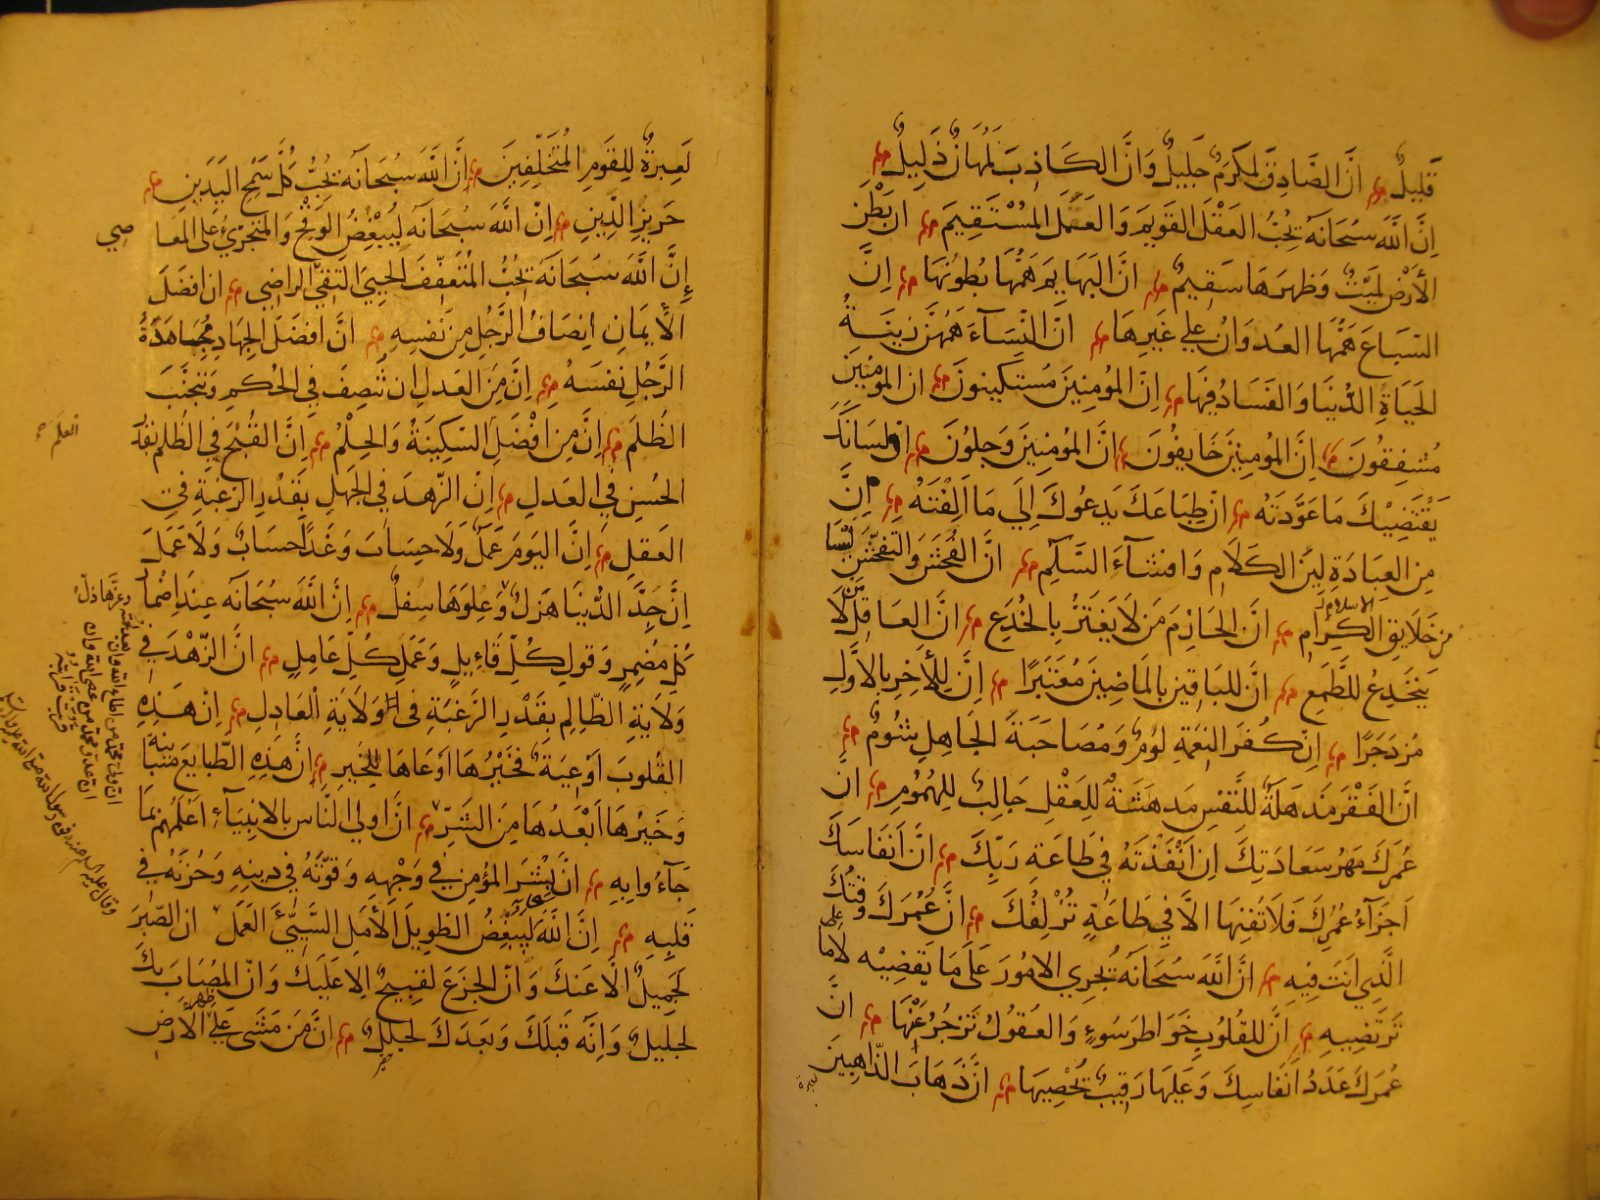 قَليلٌ اِنَّ الصَّادِقَ لَمُكَرَمٌ جَليلٌ وَاِنَّ الكَاذِبَ لَمُهَانٌ ذَلِيلٌ
اِنَّ اللّٰهَ سُبحَانَهُ يُحِبُّ العَقْلَ القَوِيمَ وَالعَمَلَ المُسْتَقِيمَ ان بَطْنَ
الأرْضِ لَمَيِّتٌ وَظَهرَهَا سَقِيمٌ انَّ البَهَايِمَ هَمُّهَا بُطُونُهَا اِنَّ
السّبَاعَ هَمُّهَا العُدوَانُ عَلي غَيرِهَا انَّ النِّسَآءَ هَمُّهُنَّ زينَةُ
الحَيَاةِ الدُّنيَا وَالفَسَادُ فِيهَا اِنَّ المُؤمِنِينَ مُستَكِينُونَ ان المؤمِنينَ
مُشفِقُونَ اِنَّ المُؤمِنِينَ خَايِفُونَ انَّ المُؤمِنِينَ وَجِلُونَ اِن لِسَانَكَ
يَقْتَضِيكَ مَا عَوَّدتَهُ انّ طِبَاعَكَ يَدعُوكَ اِلَي مَا اَلِفْتَهُ اِنَّ
مِن العِبَادَةِ لِينَ الكَلَامِ وَافشَآءَ السَّلَامِ انَّ الفُحشَ وَالتَفَحُّشَ لَيسَا
مِن خَلَايِقِ الاسلام الكِرَامِ انَّ الحَازِمَ مَن لَا يَغتَرُّ بِالخُدَعِ انَّ العَاقِلَ مَن لَا
يَنخَدِعُ للطَّمَعِ انَّ للبَاقِينَ بِالمَاضِينَ مُعتَبَرًا اِنَّ لِلأَخِرِ بِالأَوَّلِ
مُزدَجَرًا اِنَّ كُفرَ النِعمَةِ لُومٌ وَمُصَاحَبَةَ الجَاهِلِ شُومٌ
انَّ الفَقْرَ مَذهَلَةٌ للنَّفسِ مَدهَشَةٌ للعَقْلِ جَالِبٌ لِلهُمُومِ انّ
عُمرَكَ مَهرُ سَعَادَتِكَ اِن اَنْفَذْتَهُ فِي طَاعَةِ رَبِّكَ انَّ اَنفَاسَكَ
اَجزَآءُ عُمُرِكَ فَلَا تُفنِهَا الَّا فِي طَاعَةٍ تُزلِفُكَ انَّ عُمُرَكَ وَقتُكَ
الَّذِي اَنتَ فِيهِ انَّ اللّٰهَ سُبحَانَهُ يُجرِي الامُورَ عَلَى مَا يَقضِيهِ لَا عَلى مَا
تَرتَضِيهِ انَّ للقُلُوبِ خَوَاطِرَ سُوءٍ وَالعُقُولُ تَزجُرُ عَنْهَا انَّ
عُمرَكَ عَدَدُ اَنفَاسِكَ وَعَلَيهَا رَقِيبٌ تُحصِيهَا انَّ ذَهَابَ الذَّاهِبِينَ
لَعِبرَةٌ لِلقَومِ المُتَخَلِّفِينَ اِنَّ اللّٰهَ سُبحَانَهُ يُحِبُّ كُلَّ سَمْحِ اليَدَينِ
حَرِيزِ الدِّينِ اِنّ اللّٰهَ سُبحَانَهُ لَيُبغِضُ الوَقِحَ وَالمُتَجَرِّئَ عَلَى المَعَا
صِي
إِنَّ اللّٰهَ سُبحَانَهُ يُحُبُّ المُتَعَفِّفَ الحَيِيَّ التَقِيَّ الرَاضِي ان اَفضَلَ
الأيمَانِ انِصَافُ الرَّجُلِ مِن نَفسِهِ انَّ اَفضَلَ الجِهَادِ مُجَاهَدَةُ
الرَّجُلِ نَفسَهُ اِنَّ مِنَ العَدلِ ان تُنصِفَ فِي الحُكمِ وَتَجتَنَبَ
الظُلمَ اِنَّ مِن اَفْضَلِ السَّكِينَةُ وَالحِلْمُ اِنَّ القُبْحَ فِي الظُلمِ بِقَدرِ
العلم
الحُسنِ فِي العَدلِ اِنّ الزّهدَ فِي الجَهلِ بِقَدْرِ الرَغبَةِ فِي
العَقلِ اِنَّ اليَومَ عَمَلٌ وَلَا حِسَابَ وَغَدًا حِسَابٌ وَلَا عَمَلَ
اِنَّ جِدَّ الدُّنيَا هَزلٌ وَعِلوَهَا سِفلٌ اِنَّ اللّٰهَ سُبحَانَهُ عِندَ اِضْمَارِ
كُلِّ مُضمِرٍ وَقَولِ كُلِّ قَاءِيلٍ وَعَمَلِ كُلِّ عَامِلٍ انَّ الزّهْدَ فِي
وَلَايَةِ الظَّالِمِ بِقَدْرِ الرَغبَةِ فِي وَلَايَةِ الْعَادِلِ اِنّ هَذِهِ
القُلُوبَ اَوعِيَةٌ فَخَيْرُهَا اَوعَاهَا لِلخَيرِ اِنَّ هَذِهِ الطَّبَايِعَ مُتَبَايِنَةٌ
وَخَيرُهَا اَبْعَدُهَا مِنَ الشَّرِّ انَّ اَولَي النّاسِ بِالاَنبِيَآءِ اَعْلَمُهُم بِمَا
جَآءُوا بِهِ انَّ بِشْرَ المُؤمِنِ فِي وَجْهِهِ وَقُوّتَهُ فِي دِينِهِ وَحُزنَهُ فِي
قَلبِهِ اِنَّ اللّٰهَ لَيُبغِضُ الطَوِيلَ الأَمَلِ السَّيِّئَ العَمَلِ ان الصَّبرَ
لَجَمِيلٌ الَّا عَنكَ وَانَّ الجَزَعَ لَقَبِيحٌ اِلا عَلَيكَ وَانّ المُصَابَ بِكَ
لَجَلِيلٌ وَانّهُ قَبلَكَ وَبَعدَكَ لَجَلَلٌ انَّ مَن مَشَى عَلَى ظهر الأَرضِ